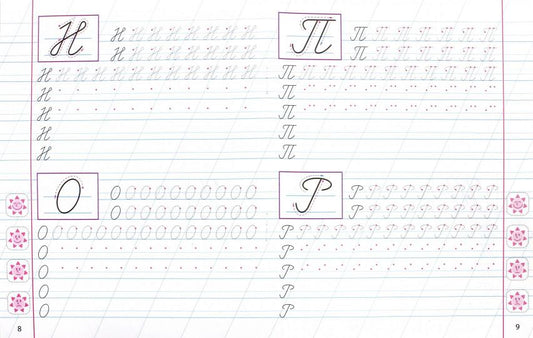 Н
Н Н Н Н Н Н Н Н
Н Н Н Н Н Н Н Н
Н Н Н Н Н Н Н Н Н Н Н Н
Н
Н
Н
Н
О
О О О О О О О О О О
О О О О О О О О О О
О О О О О О О О О О О О О О О
О
О
О
О
8
П
П П П П П П П
П П П П П П П
П П П П П П П П П П
П
П
П
П
Р
Р Р Р Р Р Р Р Р Р
Р Р Р Р Р Р Р Р Р
Р Р Р Р Р Р Р Р Р Р Р Р Р
Р
Р
Р
Р
9